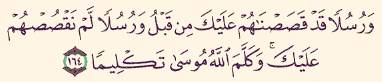 وَرُسُلًا قَدْ قَصَصْنَـٰهُمْ عَلَيْكَ مِن قَبْلُ وَرُسُلًا لَّمْ نَقْصُصْهُمْ
عَلَيْكَ ۚ وَكَلَّمَ ٱللَّهُ مُوسَىٰ تَكْلِيمًا ١٦٤